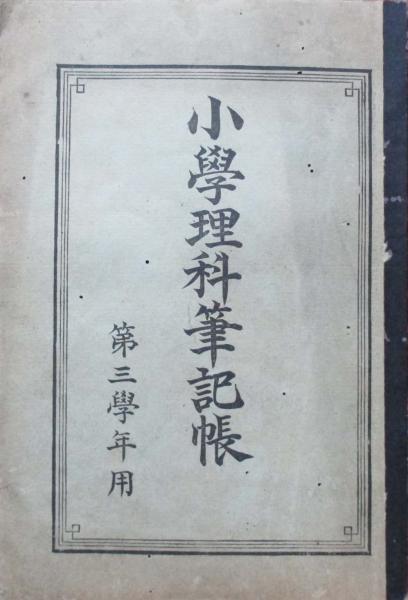 小學理科筆記帳
第三學年用